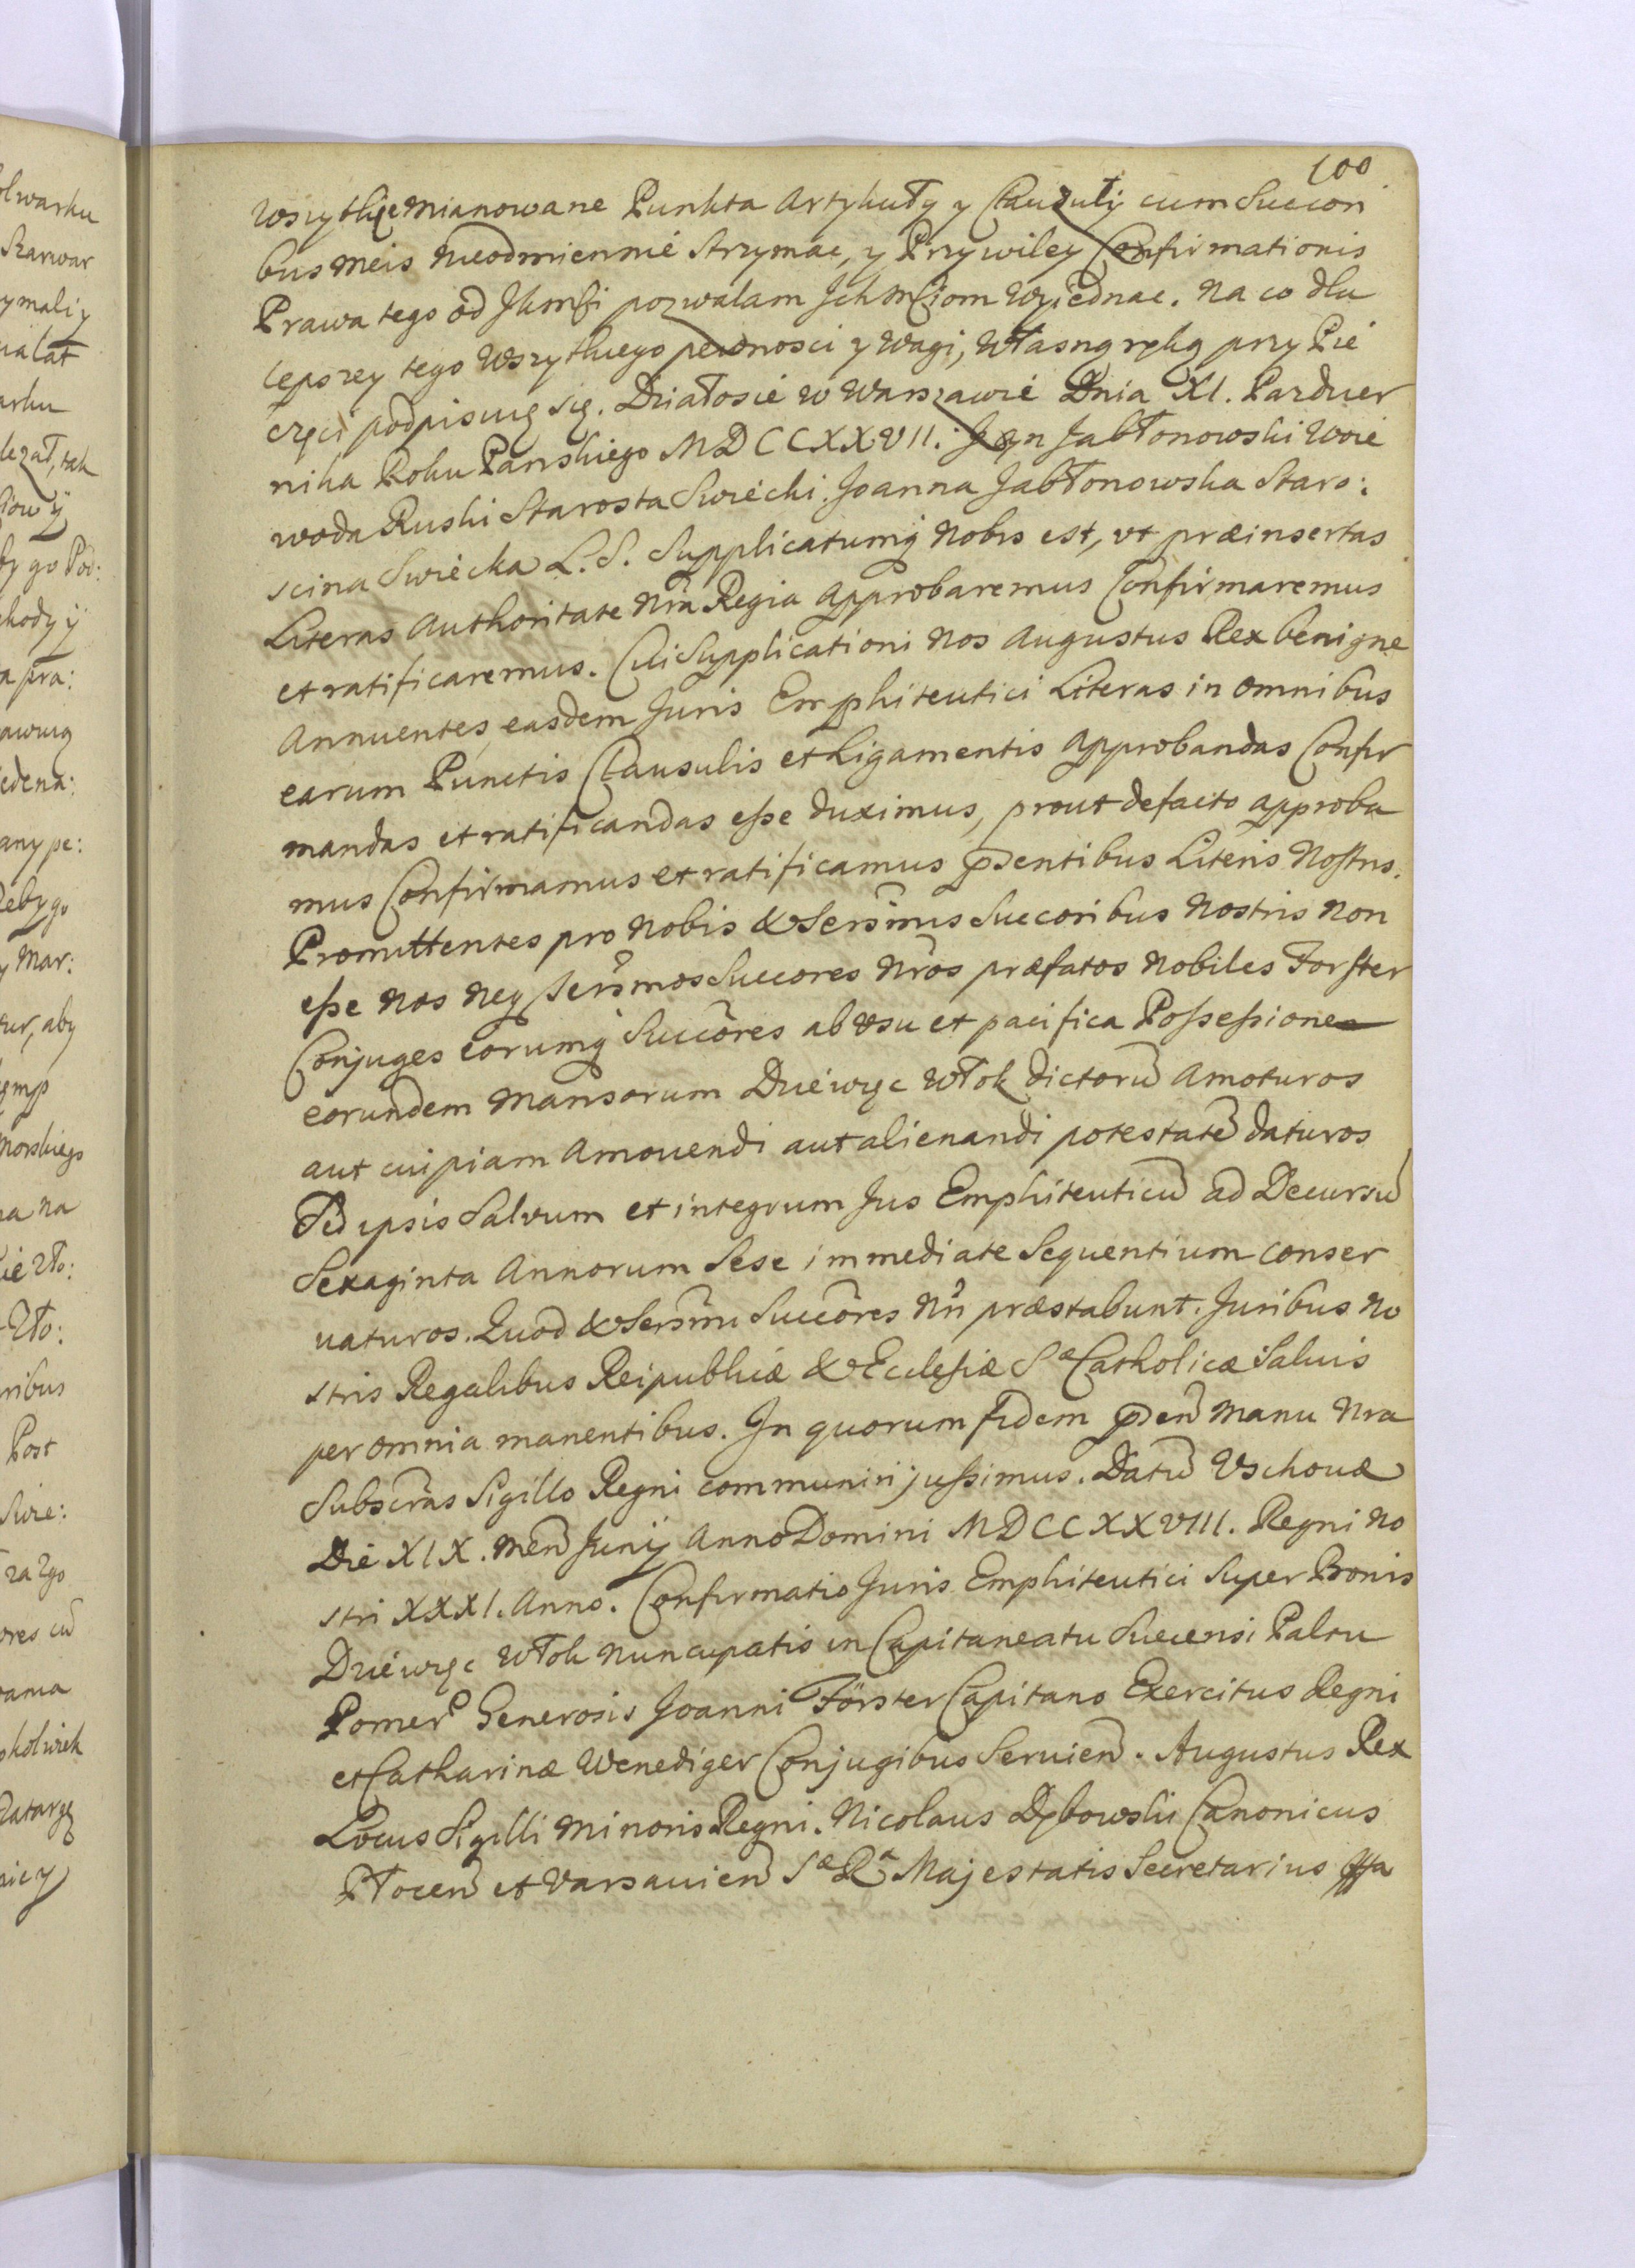 100
wszytkie mianowane Punkta Artykuły y Clauzuly cum Succori
bus meis nieodmiennie strzymac, y Przywiley Confirmationis
Prawa tego od JKmści pozwalam Ichmściom wyiednac. Na co dla
lepszey tego wszytkiego pewnosci y wagi, własną ręką przy Pie
częci podpisuię się. Działosie w Warszawie Dnia XI. Pazdzier
nika Roku Panskiego MDCCXXVII. Jan Jabłonowski Woie
woda Ruski Starosta Swiecki. Joanna Jabłonowska Staro:
scina Swiecka L.S. Supplicatumq nobis est, vt præinsertas
Literas Authoritate nra Regia approbaremus Confirmaremus
et ratificaremus. Cui Supplicationi nos Augustus Rex benigne
Annuentes, easdem Juris Emphiteutici Literas in omnibus
earum Punctis Clausulis et Ligamentis approbandas Confir
mandas et ratificandas esse duximus, prout de facto approba
mus Confirmamus et ratificamus pntibus Literis Nostris.
Promittentes pro nobis & Sersmis Succoribus nostris non
esse nos neq Sersmos Succores nros præfatos nobiles Forster
Conjuges eorumq Succores ab vsu et pacifica Possessione
eorundem mansorum Dziewięc Włok dictorũ amoturos
aut cuipiam amouendi aut alienandi potestatẽ daturos
Sed ipsis salvum et integrum Jus Emphiteuticũ ad Decursũ
Sexaginta Annorum sese immediate sequentium conser
uaturos. Quod & Sersmi Succores nri præstabunt. Juribus no
stris Regalibus Reipublicæ & Ecclesiæ Sæ Catholicæ saluis
per omnia manentibus. In quorum fidem pntẽ manu nra
Subscras Sigillo Regni communiri jussimus. Datũ Vschouæ
Die XIX. Men Junij Anno Domini MDCCXXVIII. Regni no
stri XXXI. Anno. Confirmatio Juris Emphiteutici super Bonis
Dziewięc Włok nuncupatis in Capitaneatu Suecensi Palatu
Pomer Generosis Joanni Förster Capitano Exercitus Regni
et Catharinæ Wenediger Conjugibus Seruien. Augustus Rex
Locus Sigilli minoris Regni. Nicolaus Dębowski Canonicus
Płocen et Varsauien Sæ Ræ Majestatis Secretarius